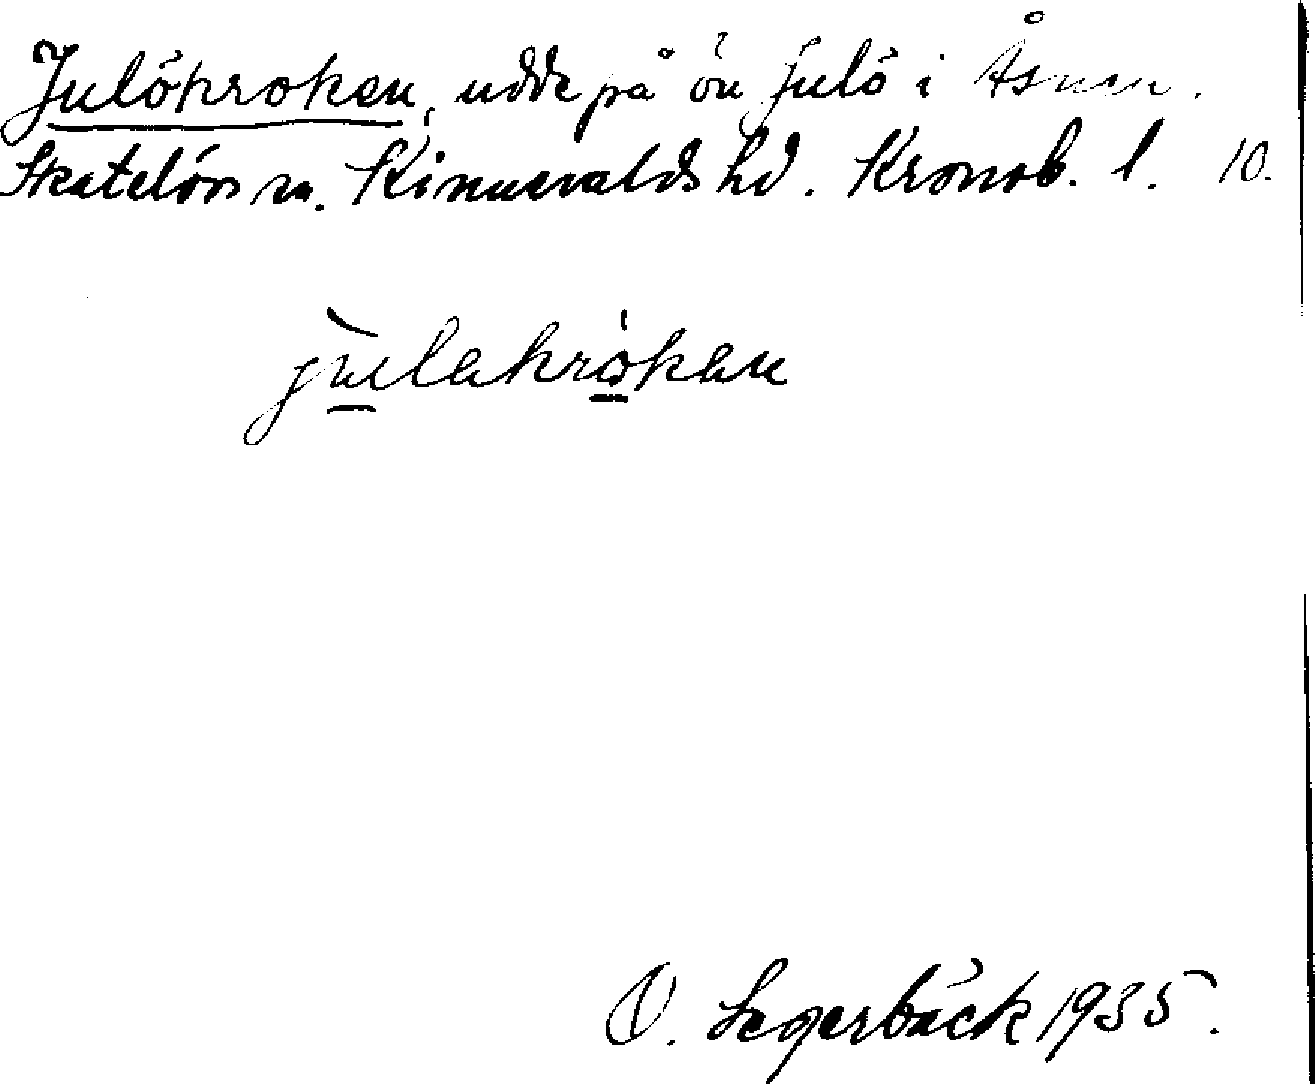 Julökroken, udde på ön Julö i Åsnen.
Skatelövs sn. Kinnevalds hd. Kronob. l. 10.
julakrokan
O. Segerbäck 1935.